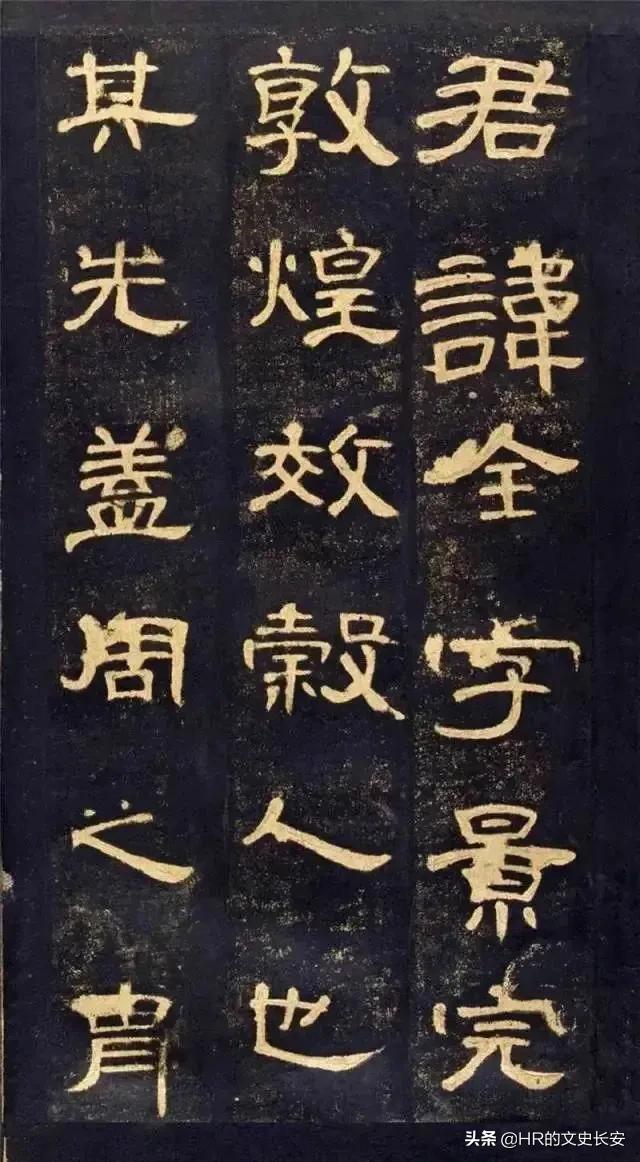 君諱全字景完
敦煌效穀人也
其先蓋周之胄
头条 @HR的文史长安